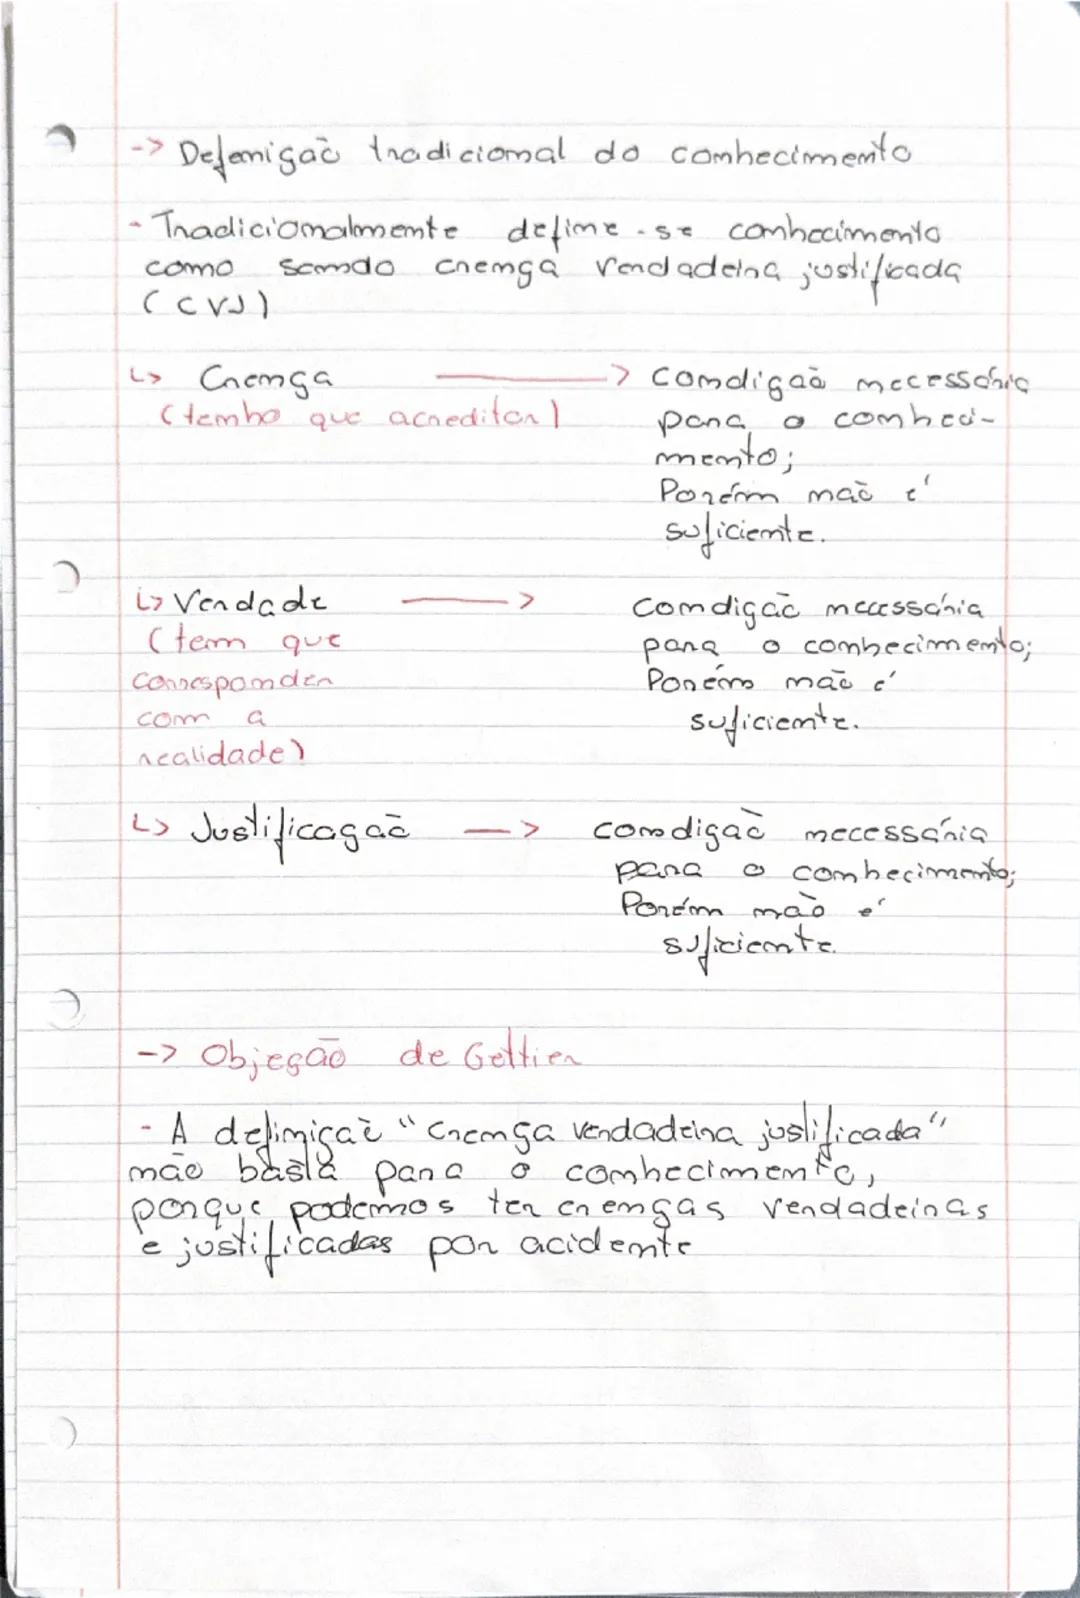 -> Definição tradicional do conhecimento
- Tradicionalmente define-se conhecimento
como sendo crença verdadeira justificada
(CVJ)
↳ Crença ——> Condição necessária
(tenho que acreditar) para o conheci-
mento;
Porém não é
suficiente.
↳ Verdade ——> Condição necessária
(tem que para o conhecimento;
corresponder Porém não é
com a suficiente.
realidade)
↳ Justificação —> condição necessária
para o conhecimento;
Porém não é
suficiente.
-> Objeção de Gettier
- A definição "Crença verdadeira justificada"
não basta para o conhecimento,
porque podemos ter crenças verdadeiras
e justificadas por acidente